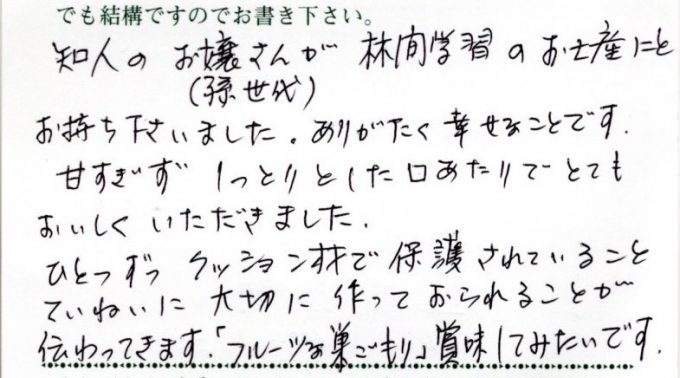 でも結構ですのでお書き下さい。
知人の お嬢さんが 林間学習 の お土産にと
(孫世代)
お持ち下さいました。ありがたく 幸せなことです.
甘すぎず しっとりとした口あたりで とても
おいしく いただきました.
ひとつずつ クッション材で 保護 されていること
ていねいに 大切に 作って おられることが
伝わってきます.「フルーツな巣ごもり」賞味してみたいです.